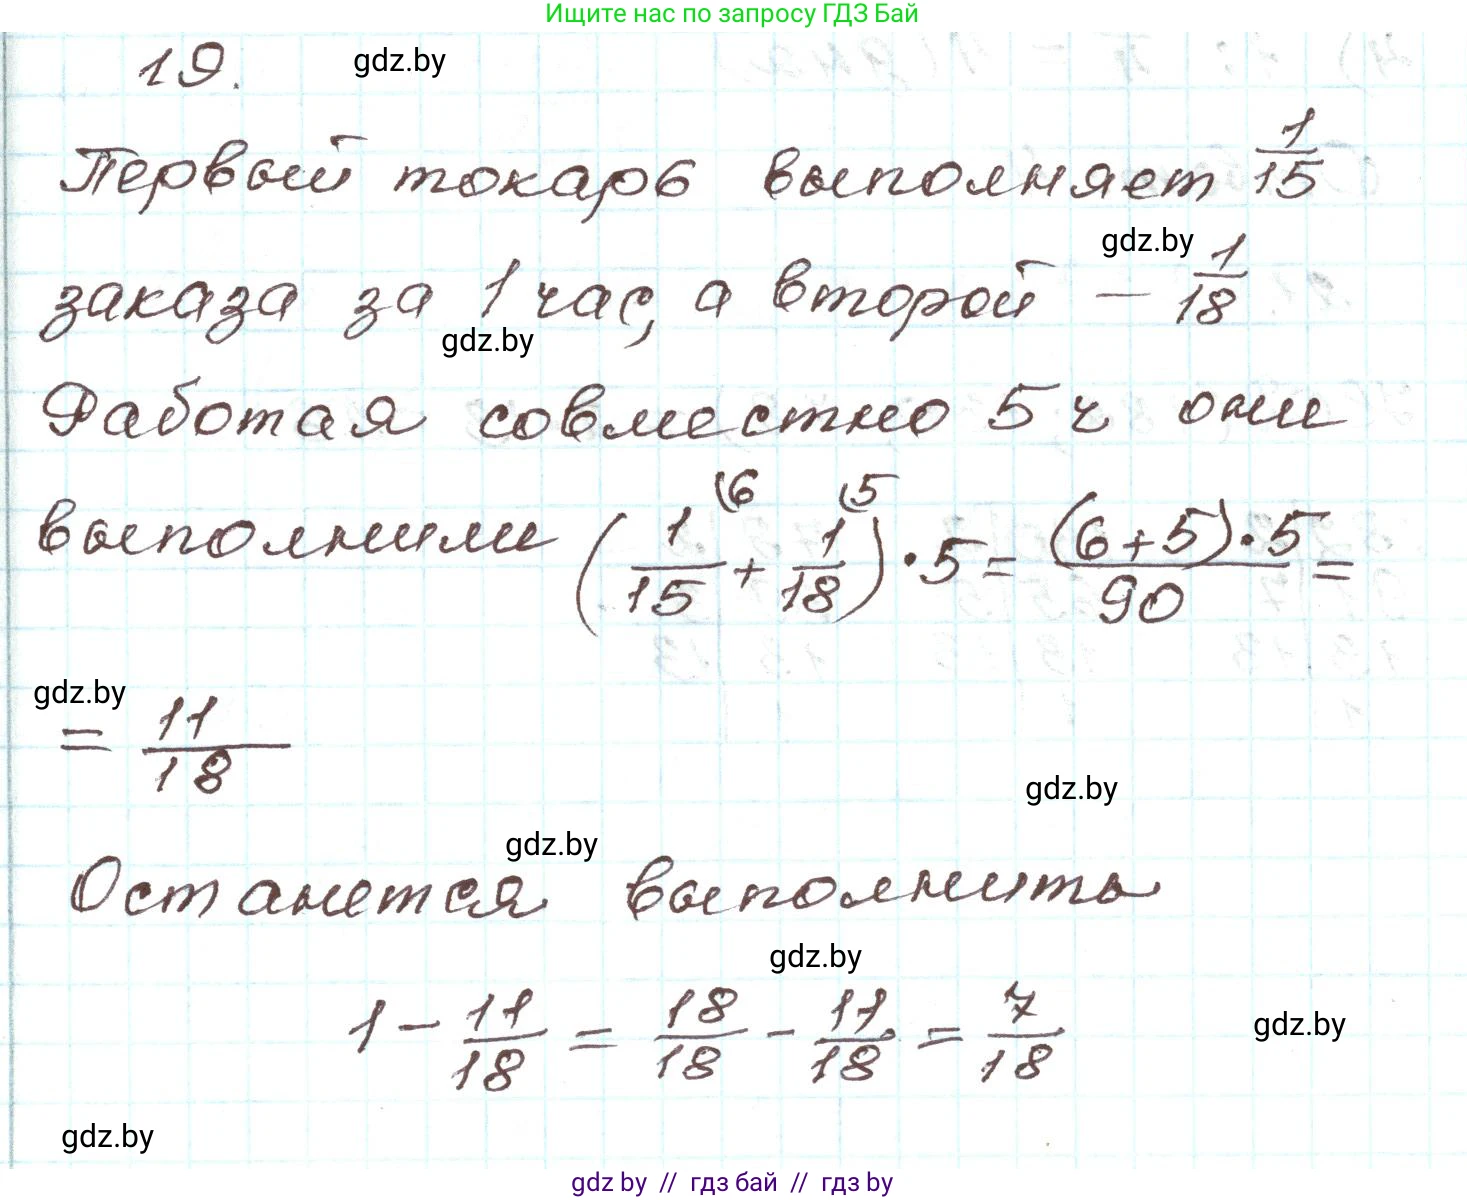 Ищите нас по запросу ГДЗ Бай
19. gdz.by
Первый токарь выполняет 1/15
gdz.by
заказа за 1 час, а второй – 1/18
gdz.by
Работая совместно 5 ч они
выполнили (1/15 (6 + 1/18 (5) · 5 = (6+5)·5/90 =
gdz.by
= 11/18
gdz.by
gdz.by
Останется выполнить
gdz.by
1 - 11/18 = 18/18 - 11/18 = 7/18
gdz.by
gdz.by
gdz by // гдз бай // гдз by